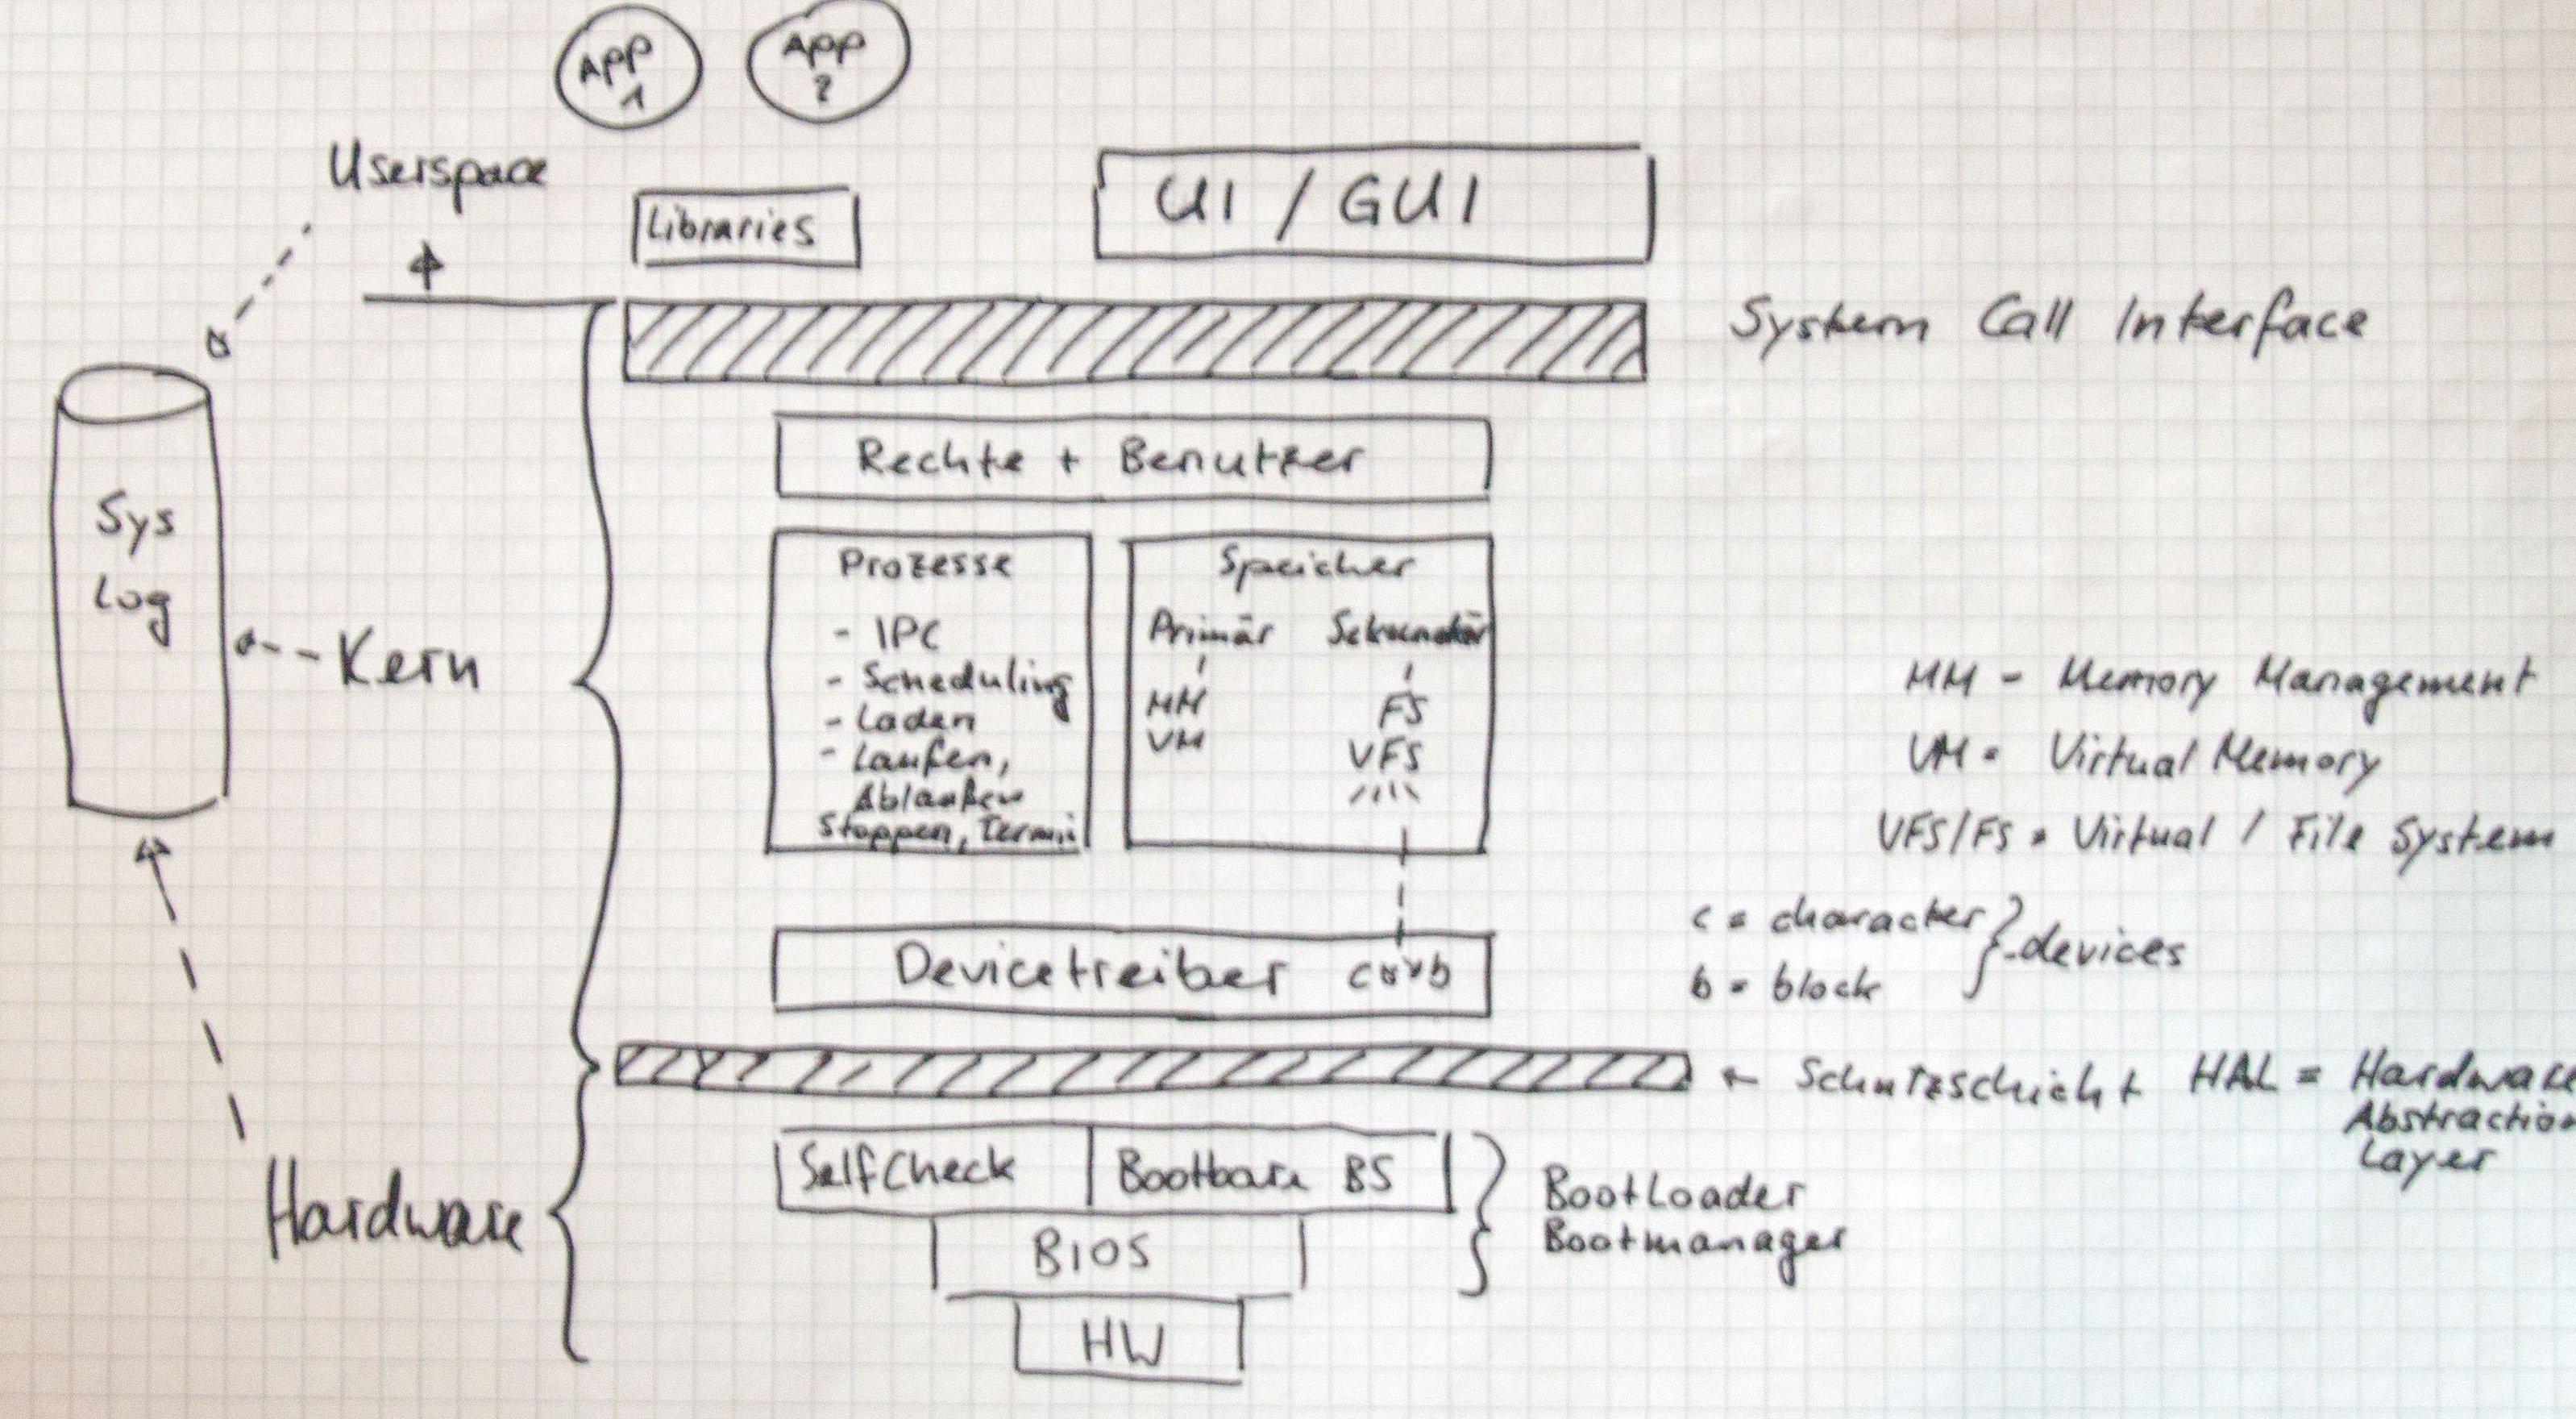 APP
1
APP
2
Userspace
Libraries
UI / GUI
System Call Interface
Rechte + Benutzer
Sys
Log
Kern
Prozesse
- IPC
- Scheduling
- Laden
- Laufen,
Ablaufen
Stoppen, Termi
Speicher
Primär Sekundär
MM FS
VM VFS
MM - Memory Management
VM = Virtual Memory
VFS/FS = Virtual / File System
Devicetreiber c b
c = character
b = block
devices
Schutzschicht HAL = Hardware
Abstraction
Layer
Hardware
SelfCheck
Bootbare BS
BIOS
HW
BootLoader
Bootmanager